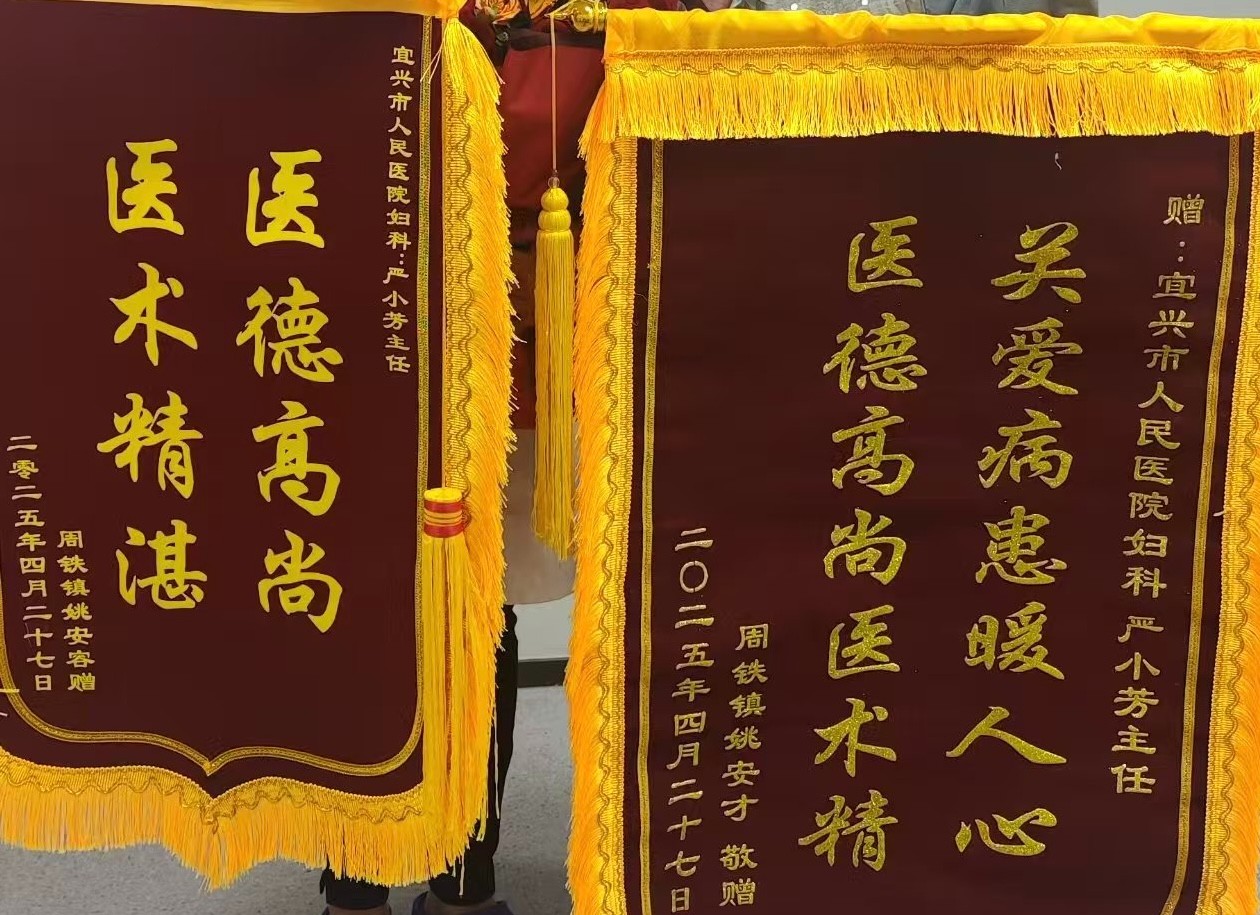 宜兴市人民医院妇科:严小芳主任
医德高尚
医术精湛
周铁镇姚安容赠
二零二五年四月二十七日
赠:宜兴市人民医院妇科严小芳主任
关爱病患暖人心
医德高尚医术精
周铁镇姚安才 敬赠
二〇二五年四月二十七日